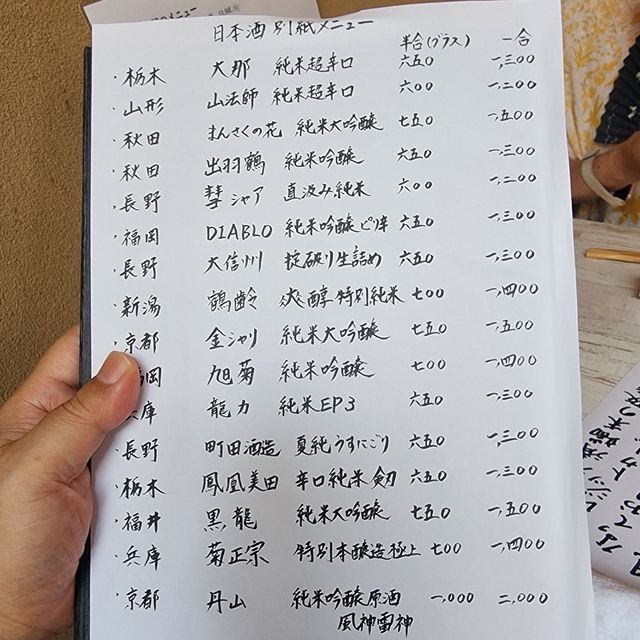 日本酒 別紙メニュー
半合(グラス) 一合
・栃木 大那 純米超辛口 六五〇 一,三〇〇
・山形 山法師 純米超辛口 六〇〇 一,二〇〇
・秋田 まんさくの花 純米大吟醸 七五〇 一,五〇〇
・秋田 出羽鶴 純米吟醸 六五〇 一,三〇〇
・長野 彗 シャア 直汲み純米 六〇〇 一,二〇〇
・福岡 DIABLO 純米吟醸ピリ辛 六五〇 一,三〇〇
・長野 大信州 掟破り生詰め 六五〇 一,三〇〇
・新潟 鶴齢 爽醇 特別純米 七〇〇 一,四〇〇
・京都 金シャリ 純米大吟醸 七五〇 一,五〇〇
岡 旭菊 純米吟醸 七〇〇 一,四〇〇
兵庫 龍力 純米EP3 六五〇 一,三〇〇
・長野 町田酒造 夏純うすにごり 六五〇 一,三〇〇
・栃木 鳳凰美田 辛口純米 剱 六五〇 一,三〇〇
・福井 黒龍 純米大吟醸 七五〇 一,五〇〇
・兵庫 菊正宗 特別本醸造極上 七〇〇 一,四〇〇
・京都 丹山 純米吟醸原酒 一,〇〇〇 二,〇〇〇
風神雷神